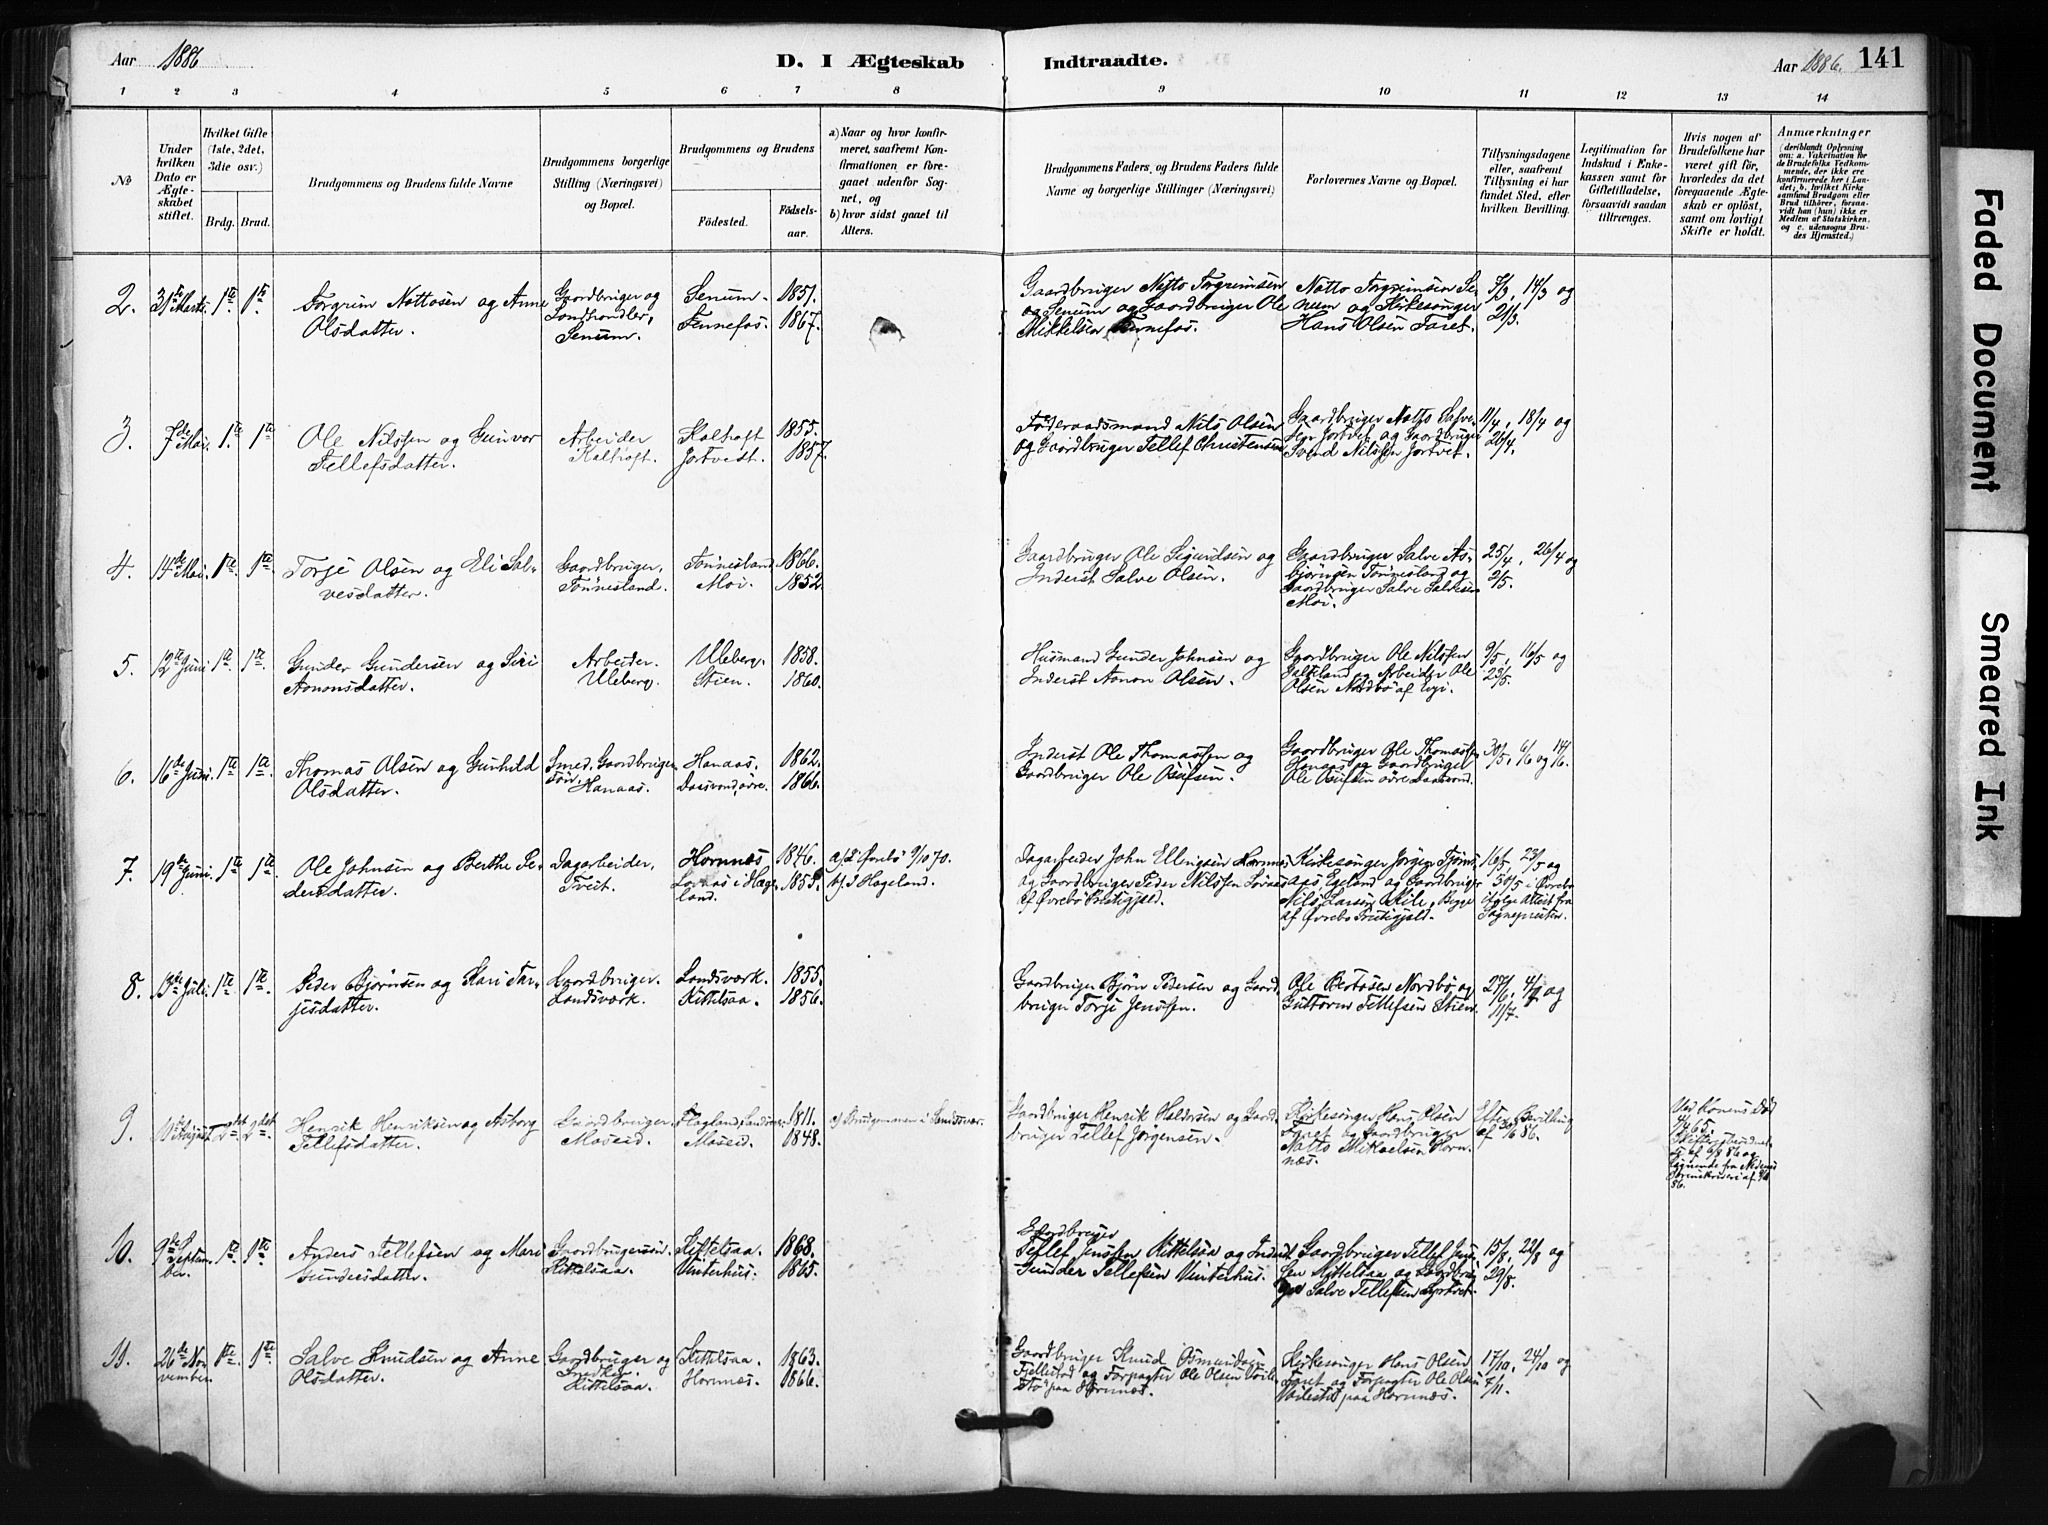 Aar 1886
D. I Ægteskab
Indtraadte.
Aar 1886.
141
1 2 3 4 5 6 7 8 9 10 11 12 13 14
No
Under hvilken Dato er Ægteskabet stiftet.
Hvilket Gifte (1ste, 2det, 3die osv.)
Brdg. Brud.
Brudgommens og Brudens fulde Navne
Brudgommens borgerlige Stilling (Næringsvei) og Bopæl.
Brudgommens og Brudens
Födested.
Födsels-aar.
a) Naar og hvor konfirmeret, saafremt Konfirmationen er foregaaet udenfor Sognet, og
b) hvor sidst gaaet til Alters.
Brudgommens Faders, og Brudens Faders fulde Navne og borgerlige Stillinger (Næringsvei)
Forlovernes Navne og Bopæl.
Tillysningsdagene eller, saafremt Tillysning ei har fundet Sted, efter hvilken Bevilling.
Legitimation for Indskud i Enkekassen samt for Giftetilladelse, forsaavidt saadan tiltrænges.
Hvis nogen af Brudefolkene har været gift för, hvorledes da det foregaaende Ægteskab er oplöst, samt om lovligt Skifte er holdt.
Anmærkninger (deriblandt Oplysning om: a. Vakcination for de Brudefolks Vedkommende, der ikke ere konfirmerede her i Landet; b. hvilket Kirkesamfund Brudgom eller Brud tilhörer, forsaavidt han (hun) ikke er Medlem af Statskirken, og c. udensogns Brudes Hjemsted.)
2. 31te Marts. 1te 1te
Torgrim Nottosen og Anne
Olsdatter.
Gaardbruger og
Landhandler,
Senum.
Senum. 1851.
Fennefos. 1867.
Gaardbruger Notto Torgrimsen
og Senum og Gaardbruger Ole
Mikkelsen Fennefos.
Notto Torgrimsen Se-
num og Kirkesanger
Hans Olsen Faret.
7/3, 14/3 og
21/3.
3. 7de Mai. 1te 1te
Ole Nilssen og Gunvor
Tellefsdatter.
Arbeider
Kalhoft.
Kalhoft 1855.
Jortveit. 1857.
Föderaadsmand Nils Olsen
og Gaardbruger Tellef Christensen
Gaardbruger Notto Salve-
sen Jortvet og Gaardbruger
Svend Nilssen Jortvet.
11/4, 18/4 og
4. 14de Mai. 1te 1te
Torje Olsen og Eli Sal-
vesdatter.
Gaardbruger,
Tönnesland.
Tönnesland 1866.
Moi. 1852.
Gaardbruger Ole Sigurdsen og
Inderst Salve Olsen.
Gaardbruger Salve As-
björnsen Tönnesland og
Gaardbruger Salve Salvesen
Moi.
25/4, 26/4 og
2/5.
5. 12te Juni 1te 1te
Gunder Gundersen og Siri
Aanonsdatter.
Arbeider.
Uleberg.
Uleberg. 1858.
Stien. 1860.
Husmand Gunder Johnsen og
Inderst Aanon Olsen.
Gaardbruger Ole Nilssen
og Arbeider Ole
Olsen Nordbö af
9/5, 16/5 og
23/5.
6. 16de Juni. 1te 1te
Thomas Olsen og Gunhild
Olsdatter.
Smed. Gaardbruger
sön Hanaas.
Hanaas. 1862.
Daasvand, övre. 1866.
Inderst Ole Thomassen og
Gaardbruger Ole Osufsen.
Gaardbruger Ole Thomassen
Hanaas og Gaardbruger
Ole Osufsen övre Daasvand.
30/5, 6/6 og 14/6.
7. 19de Juni. 1te 1te
Ole Johnsen og Berthe Pe-
dersdatter.
Dagarbeider,
Tveit.
Hornnæs 1846.
i Hæge-
land.
a) I Övrebö 9/10 70.
b) I Hægeland.
Dagarbeider John Ellingsen Hornnæs
og Gaardbruger Peder Nilssen
af Övrebö Præstegjæld.
Kirkesanger Jörgen
Egeland og Gaardbruger
Nils Larsen Kile,
af Övrebö Præstegjæld.
16/5, 23/5 og
30/5 i Övrebö
ifölge Attest fra
Sognepresten.
8. 13de Juli. 1te 1te
Peder Björnsen og Kari Tar-
jesdatter.
Gaardbruger.
Landsværk.
Landsværk. 1855.
Kittelsaa. 1856.
Gaardbruger Björn Pedersen og Gaard-
bruger Torje Jenssen.
Ole Nordbö og
Guttorm Tellefsen Stien.
27/6, 4/7 og
11/7.
9. August 2det 2det
Henrik Henriksen og Asborg
Tellefsdatter.
Gaardbruger
Moseid.
Flageland, Sandsvær 1811.
Moseid. 1848.
a) Brudgommen i Sandsvær.
Gaardbruger Henrik Haldorsen og Gaard-
bruger Tellef Jörgensen.
Kirkesanger Hans Olsen
Faret og Gaardbruger
Notto Mikaelsen Horn-
næs.
Efter Bevilling
af 86.
Ved Konens Död
10. 9de Septem-
ber. 1te 1te
Anders Tellefsen og Mari
Gundersdatter.
Gaardbrugersön
Kittelsaa.
Kittelsaa. 1868.
Vinterhus. 1865.
Gaardbruger
Tellef Jenssen Kittelsaa og Inderst
Gunder Tellefsen Vinterhus.
Gaardbruger Tellef Jens-
sen Kittelsaa og Gaardbru-
ger Salve Tellefsen
15/8, 22/8 og
29/8.
11. 26de No-
vember. 1te 1te
Salve Knudsen og Anne
Olsdatter.
Gaardbruger og
Snedker.
Kittelsaa.
Kittelsaa. 1863.
Hornnæs. 1866.
Gaardbruger Knud Osmundsen
og Forpagter Ole Olsen
paa Hornnæs.
Kirkesanger Hans Olsen
Faret og Forpagter Ole Olsen
paa Hornnæs.
17/10, 24/10 og
Faded Document
Smeared Ink